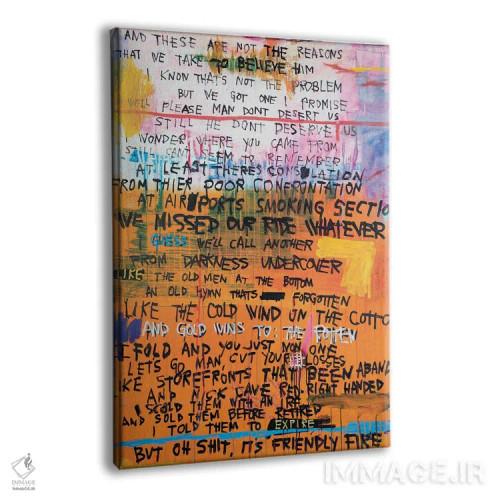 AND THESE ARE NOT THE REASONS
THAT WE TAKE TO BELIEVE HIM
I KNOW THATS NOT THE PROBLEM
BUT WE GOT ONE I PROMISE
WELL PLEASE MAN DONT DESERT US
STILL HE DONT DESERVE US
WONDER WHERE YOU CAME FROM
STILL CANT SEEM TO REMEMBER
AT LEAST THERES CONSOLATION
FROM THIER POOR CONFRONTATION
AT AIRPORTS SMOKING SECTIO
WE MISSED OUR RIDE WHATEVER
GUESS WE'LL CALL ANOTHER
FROM DARKNESS UNDERCOVER
LIKE THE OLD MEN AT THE BOTTOM
AN OLD HYMN THATS FORGOTTEN
LIKE THE COLD WIND ON THE COTTO
AND GOLD WINS TO: THE ROTTEN
I FOLD AND YOU JUST WON ONE
LETS GO MAN CUT YOUR LOSSES
KE STOREFRONTS THAT BEEN ABAND
AND NICK CAVE RED RIGHT HANDED
SCOLD THEM WITH AN
AND SOLD THEM BEFORE RETIRED
TOLD THEM TO EXPIRE
BUT OH SHIT, IT'S FRIENDLY FIRE
IMMAGE
IMMAGE.IR